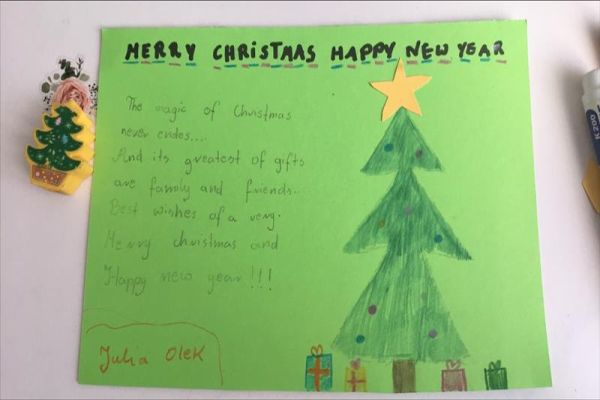 MERRY CHRISTMAS HAPPY NEW YEAR
The magic of Christmas
never endes...
And its greatest of gifts
are family and friends..
Best wishes of a very.
Merry christmas and
Happy new year !!!
Julia Olek
K 200